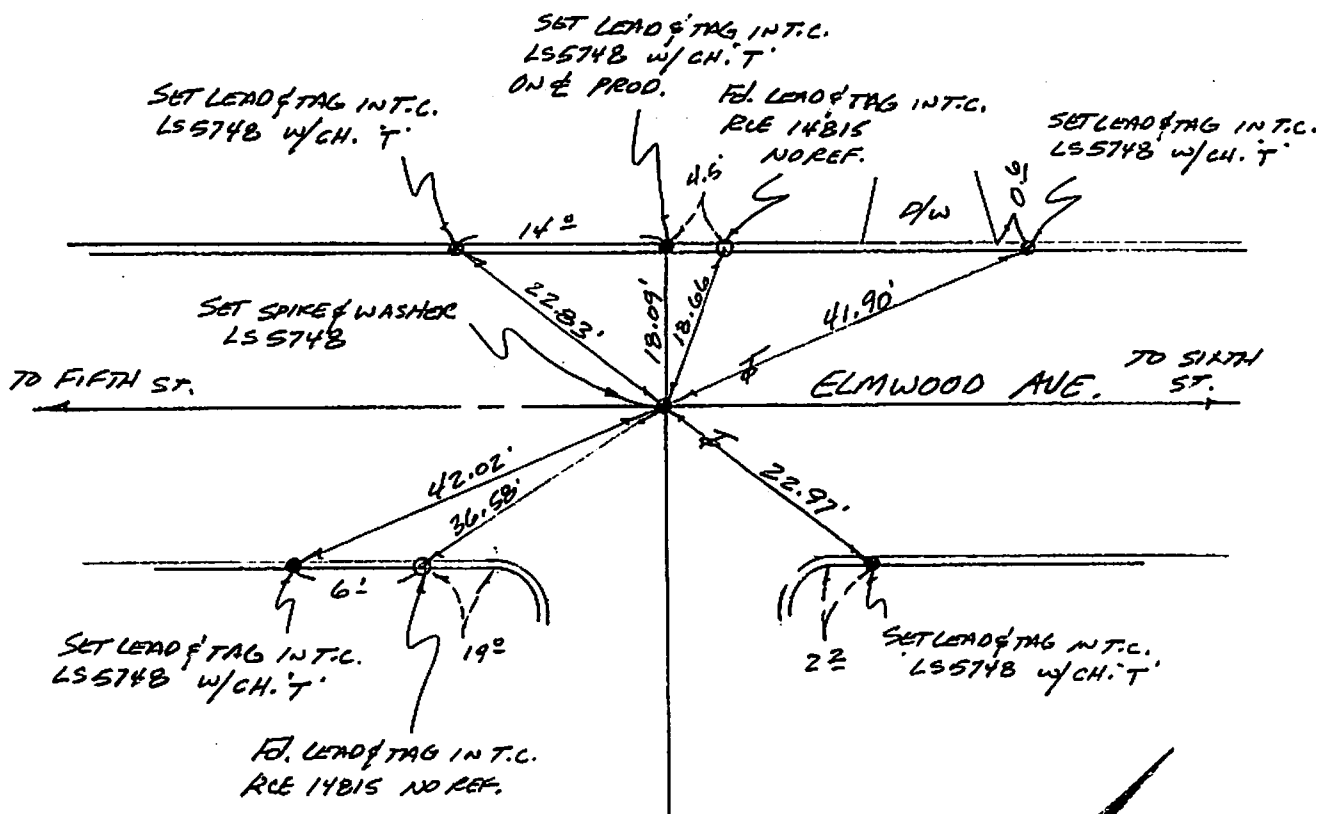 SET LEAD & TAG IN T.C.
LS5748 W/CH. 'T'
ON ℄ PROD.
SET LEAD & TAG IN T.C.
LS5748 W/CH. 'T'
Fd. LEAD & TAG IN T.C.
RCE 14815
NO REF.
SET LEAD & TAG IN T.C.
LS5748 W/CH. 'T'
4.5'
0.6
D/W
14.0
22.83'
18.09'
18.66
41.90'
SET SPIKE & WASHER
LS5748
TO FIFTH ST.
ELMWOOD AVE.
TO SIXTH
ST.
42.02'
36.58'
22.97'
6.1
19.0
2.2
SET LEAD & TAG IN T.C.
LS5748 W/CH. 'T'
SET LEAD & TAG IN T.C.
LS5748 W/CH. 'T'
Fd. LEAD & TAG IN T.C.
RCE 14815 NO REF.